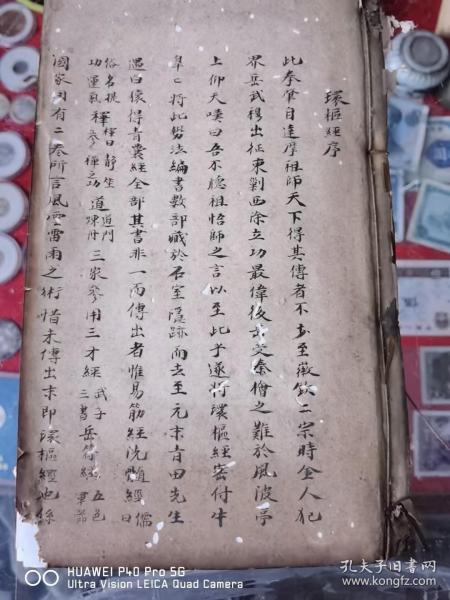 環樞經序
此拳肇自達摩祖師天下得其傳者不多至徽欽二宗時金人犯
界岳武穆出征東剿西除立功最偉後遭奸秦檜之難於風波亭
上仰天嘆曰吾不聽祖師之言以至此乎遂將環樞經密付牛
臯臯將此勢法編書數部藏於石室隱跡而去至元末青田先生
遇白猿得青囊經全部其書非一而傳出者惟易筋經洗髓經儒曰
俗名 釋曰靜坐 道門
功運氣 釋參禪之功 道煉丹 三家參用三才經 武子三書 岳
國家内有二卷所言風雲雷雨之術惜未傳出末即環樞經也
HUAWEI P40 Pro 5G
Ultra Vision LEICA Quad Camera
孔夫子旧书网
www.kongfz.com